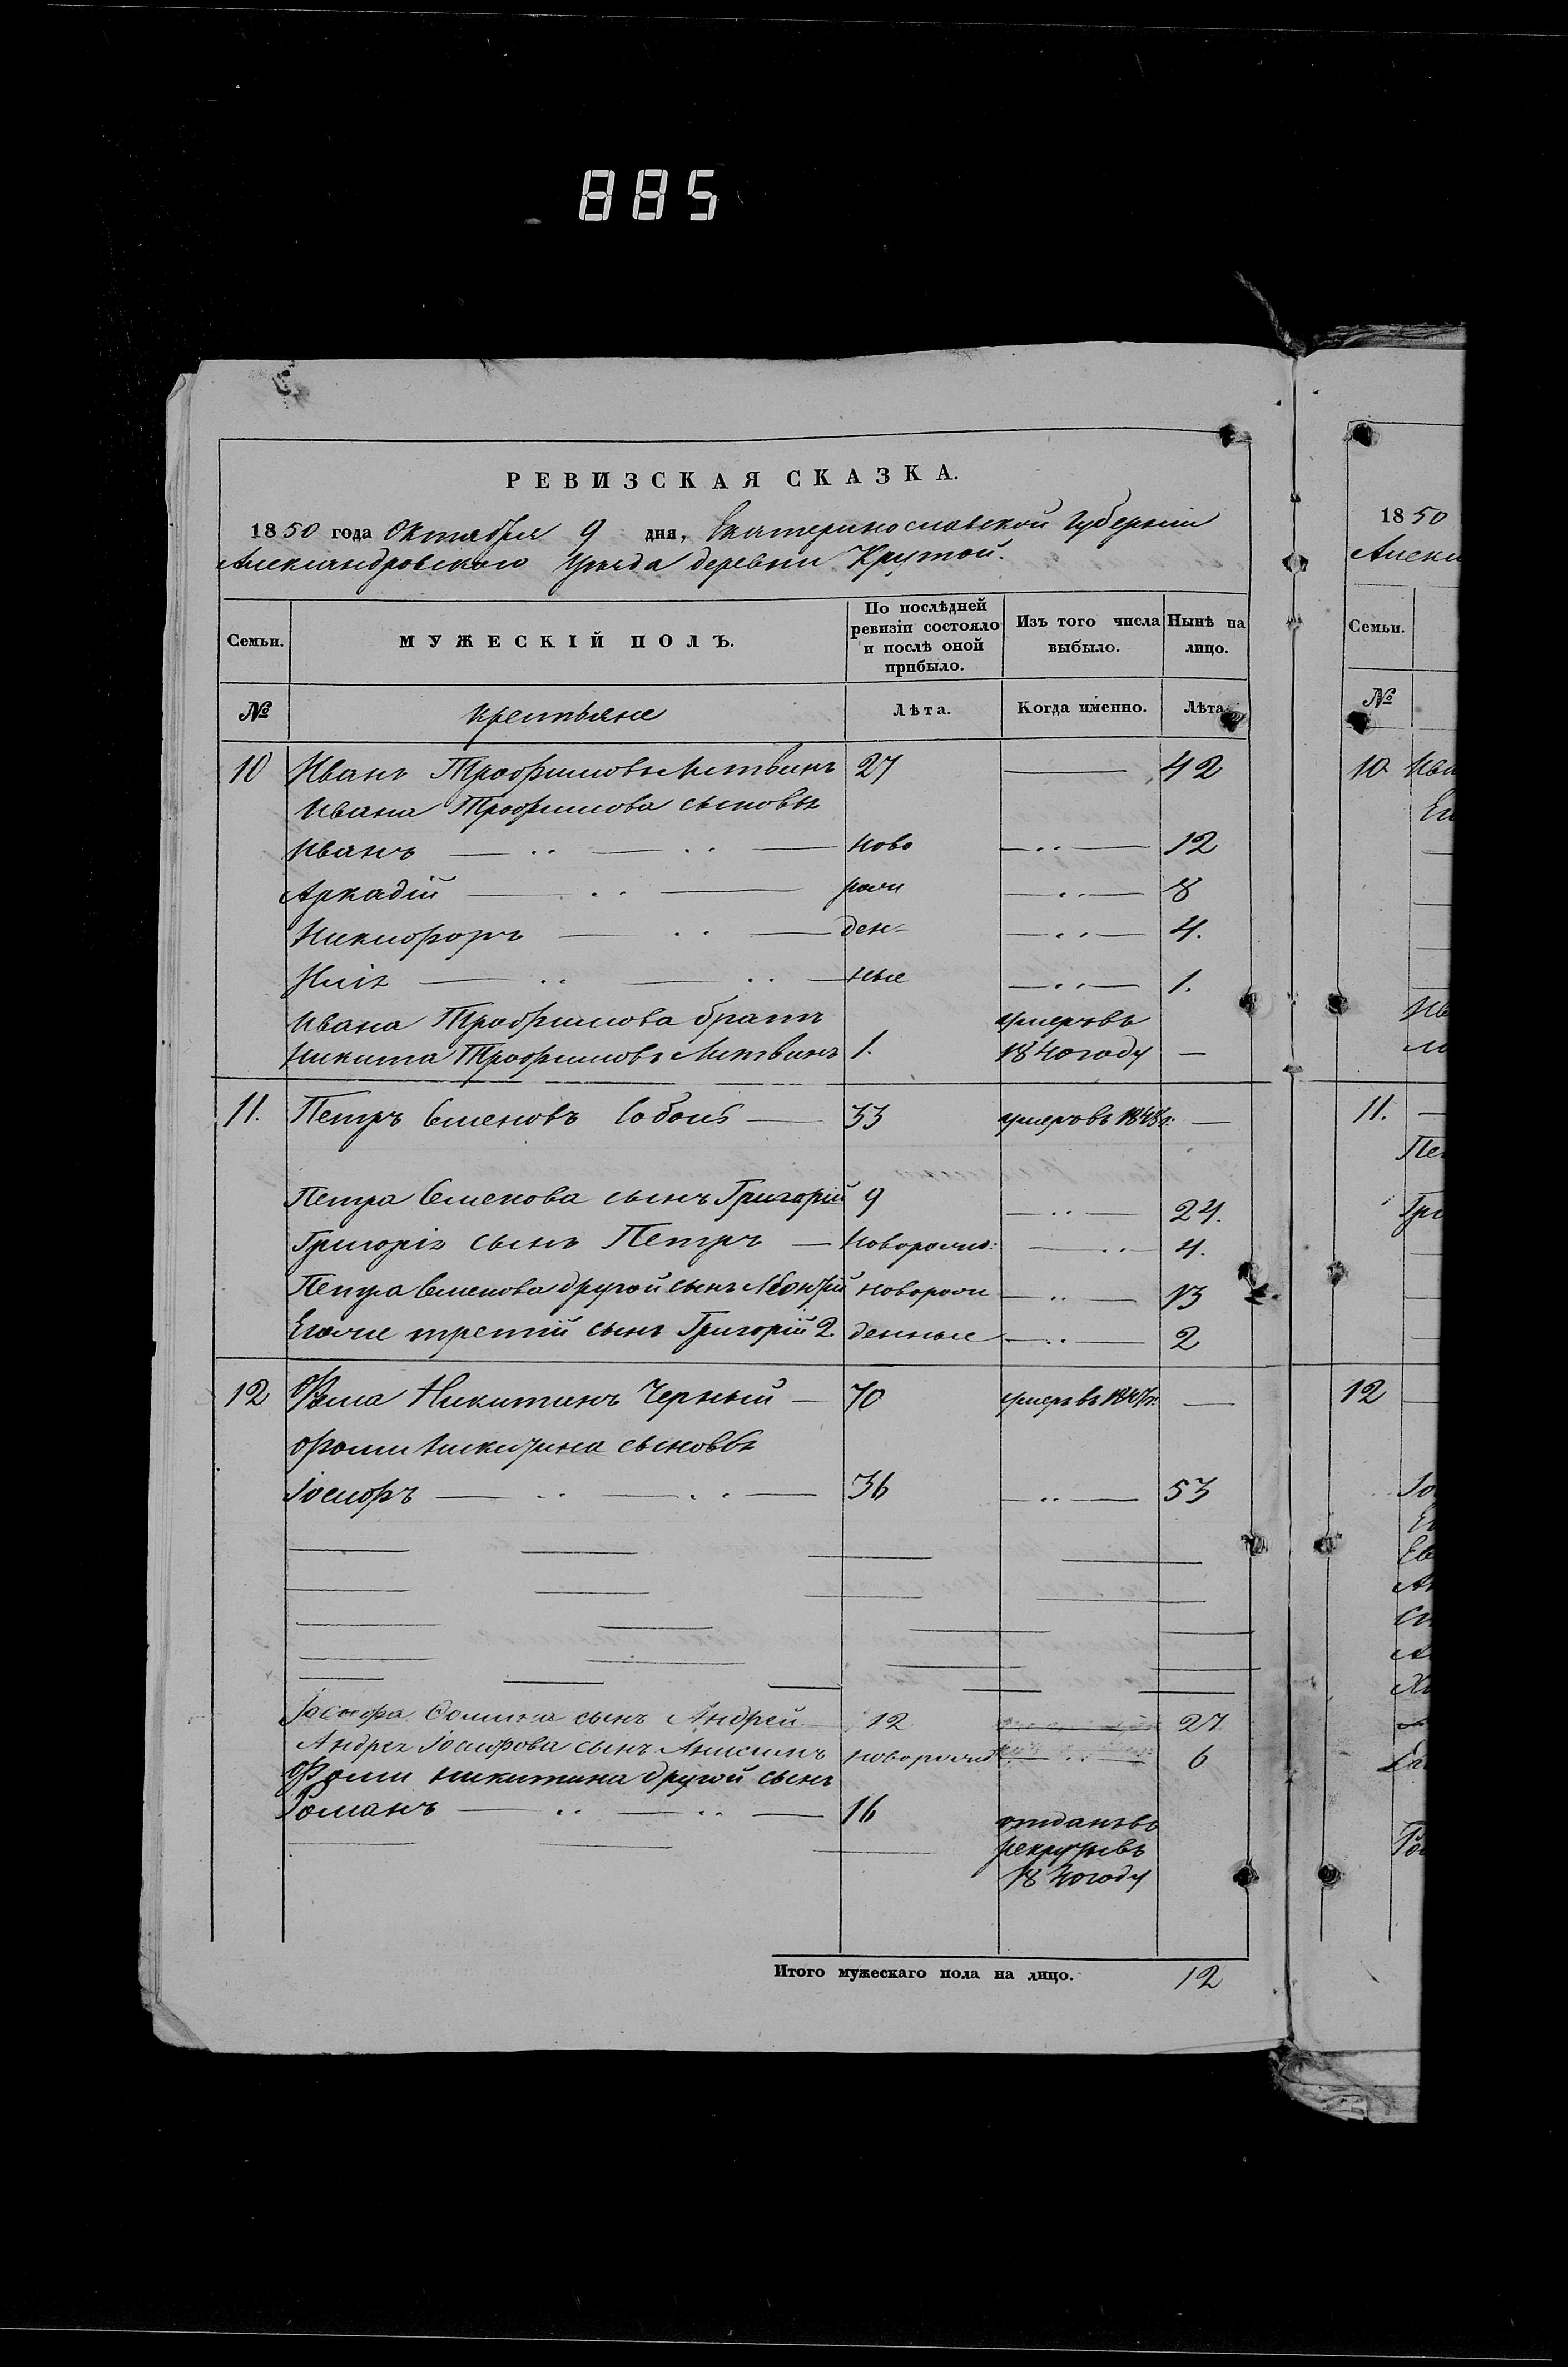 885
РЕВИЗСКАЯ СКАЗКА.
1850 года Октября 9 дня, Екатеринославской Губерніи
Александровскаго Уѣзда деревни Крутой.
Семьи. МУЖЕСКІЙ ПОЛЪ. По послѣдней ревизіи состояло и послѣ оной прибыло. Изъ того числа выбыло. Нынѣ на лицо.
№ Крестьяне Лѣта. Когда именно. Лѣта
10 Иванъ Трофимовъ Литвинъ 27 — 42
Ивана Трофимова сыновья
Иванъ — ·· — ·· — ново — ·· — 12
Аркадій — ·· — рож — ·· — 8
Никифоръ — ·· — ден- — ·· — 4.
Илія — ·· — ·· — ные — ·· — 1.
Ивана Трофимова братъ умеръ въ
Никита Трофимовъ Литвинъ 1. 1840 году —
11. Петръ Семеновъ — 33 умеръ въ 1848 г. —
Петра Семенова сынъ Григорій 9 — ·· — 24.
Григорія сынъ Петръ — Новорожд: — ·· — 4.
Петра Семенова другой сынъ Леонтій новорож — ·· — 13
Егоже третій сынъ Григорій 2. денные — ·· — 2
12 Фома Никитинъ Черный — 70 умеръ въ —
Фомы Никитина сыновья
Іосифъ — ·· — ·· — 36 — ·· — 53
Іосифа Фомина сынъ Андрей 12 27
Андрея Іосифова сынъ Анисимъ новорожд 6
Фомы Никитина другой сынъ
Романъ — ·· — ·· — 16 отданъ въ
рекруты въ
1840 году
Итого мужескаго пола на лицо. 12
1850
Алекс
Семьи.
№
10 Ива
11. —
Пе
Гри
12